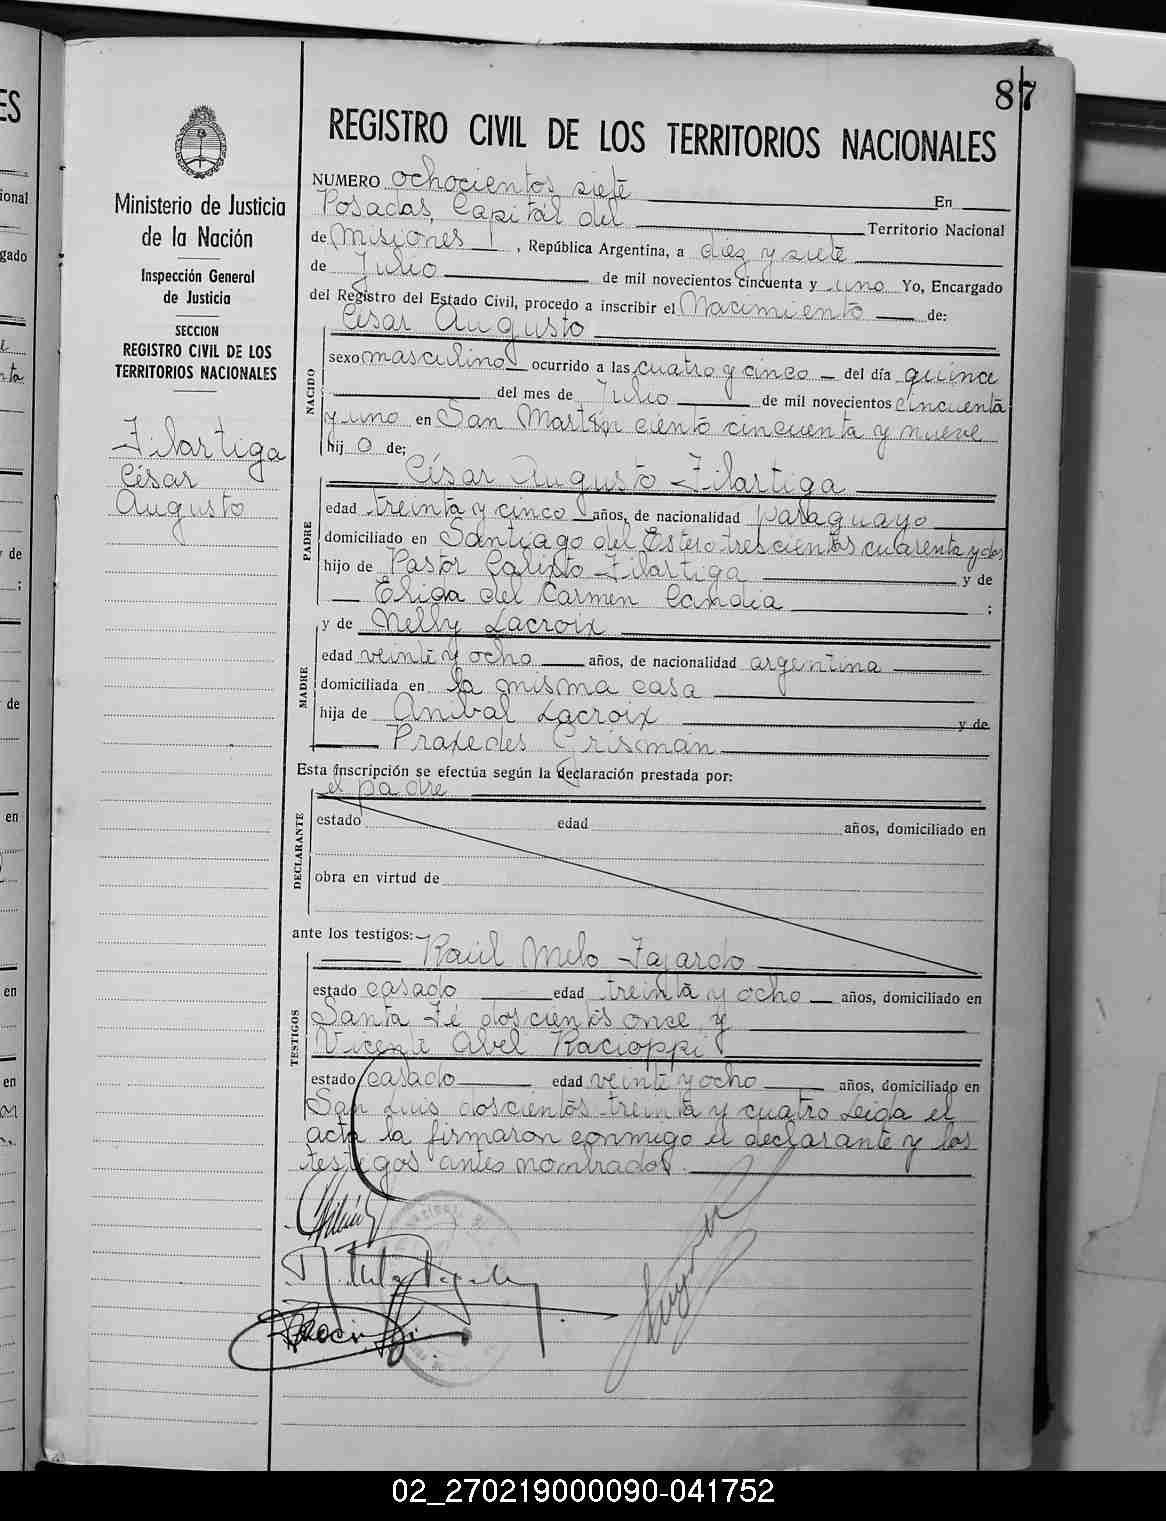 87
REGISTRO CIVIL DE LOS TERRITORIOS NACIONALES
Ministerio de Justicia
de la Nación
Inspección General
de Justicia
SECCION
REGISTRO CIVIL DE LOS
TERRITORIOS NACIONALES
Filartiga
César
Augusto
NUMERO ochocientos siete En
Posadas, Capital del Territorio Nacional
de Misiones, República Argentina, a diez y siete
de Julio de mil novecientos cincuenta y uno Yo, Encargado
del Registro del Estado Civil, procedo a inscribir el Nacimiento de:
César Augusto
NACIDO
sexo masculino ocurrido a las cuatro y cinco del día quince
del mes de Julio de mil novecientos cincuenta
y uno en San Martín ciento cincuenta y nueve
hijo de;
César Augusto Filartiga
PADRE
edad treinta y cinco años, de nacionalidad paraguayo
domiciliado en Santiago del Estero trescientos cuarenta y dos
hijo de Pastor Filartiga y de
Elida del Carmen Candia ;
y de Nelly Lacroix
MADRE
edad veinte y ocho años, de nacionalidad argentina
domiciliada en la misma casa
hija de Anibal Lacroix y de
Praxedes Grismán
Esta inscripción se efectúa según la declaración prestada por:
el padre
DECLARANTE
estado edad años, domiciliado en
obra en virtud de
ante los testigos:
Raúl Melo Fajardo
TESTIGOS
estado casado edad treinta y ocho años, domiciliado en
Santa Fé doscientos once y
Vicente Abel Racioppi
estado casado edad veinte y ocho años, domiciliado en
San Luis doscientos treinta y cuatro Leida el
acta la firmaron conmigo el declarante y los
testigos antes nombrados.
02_270219000090-041752